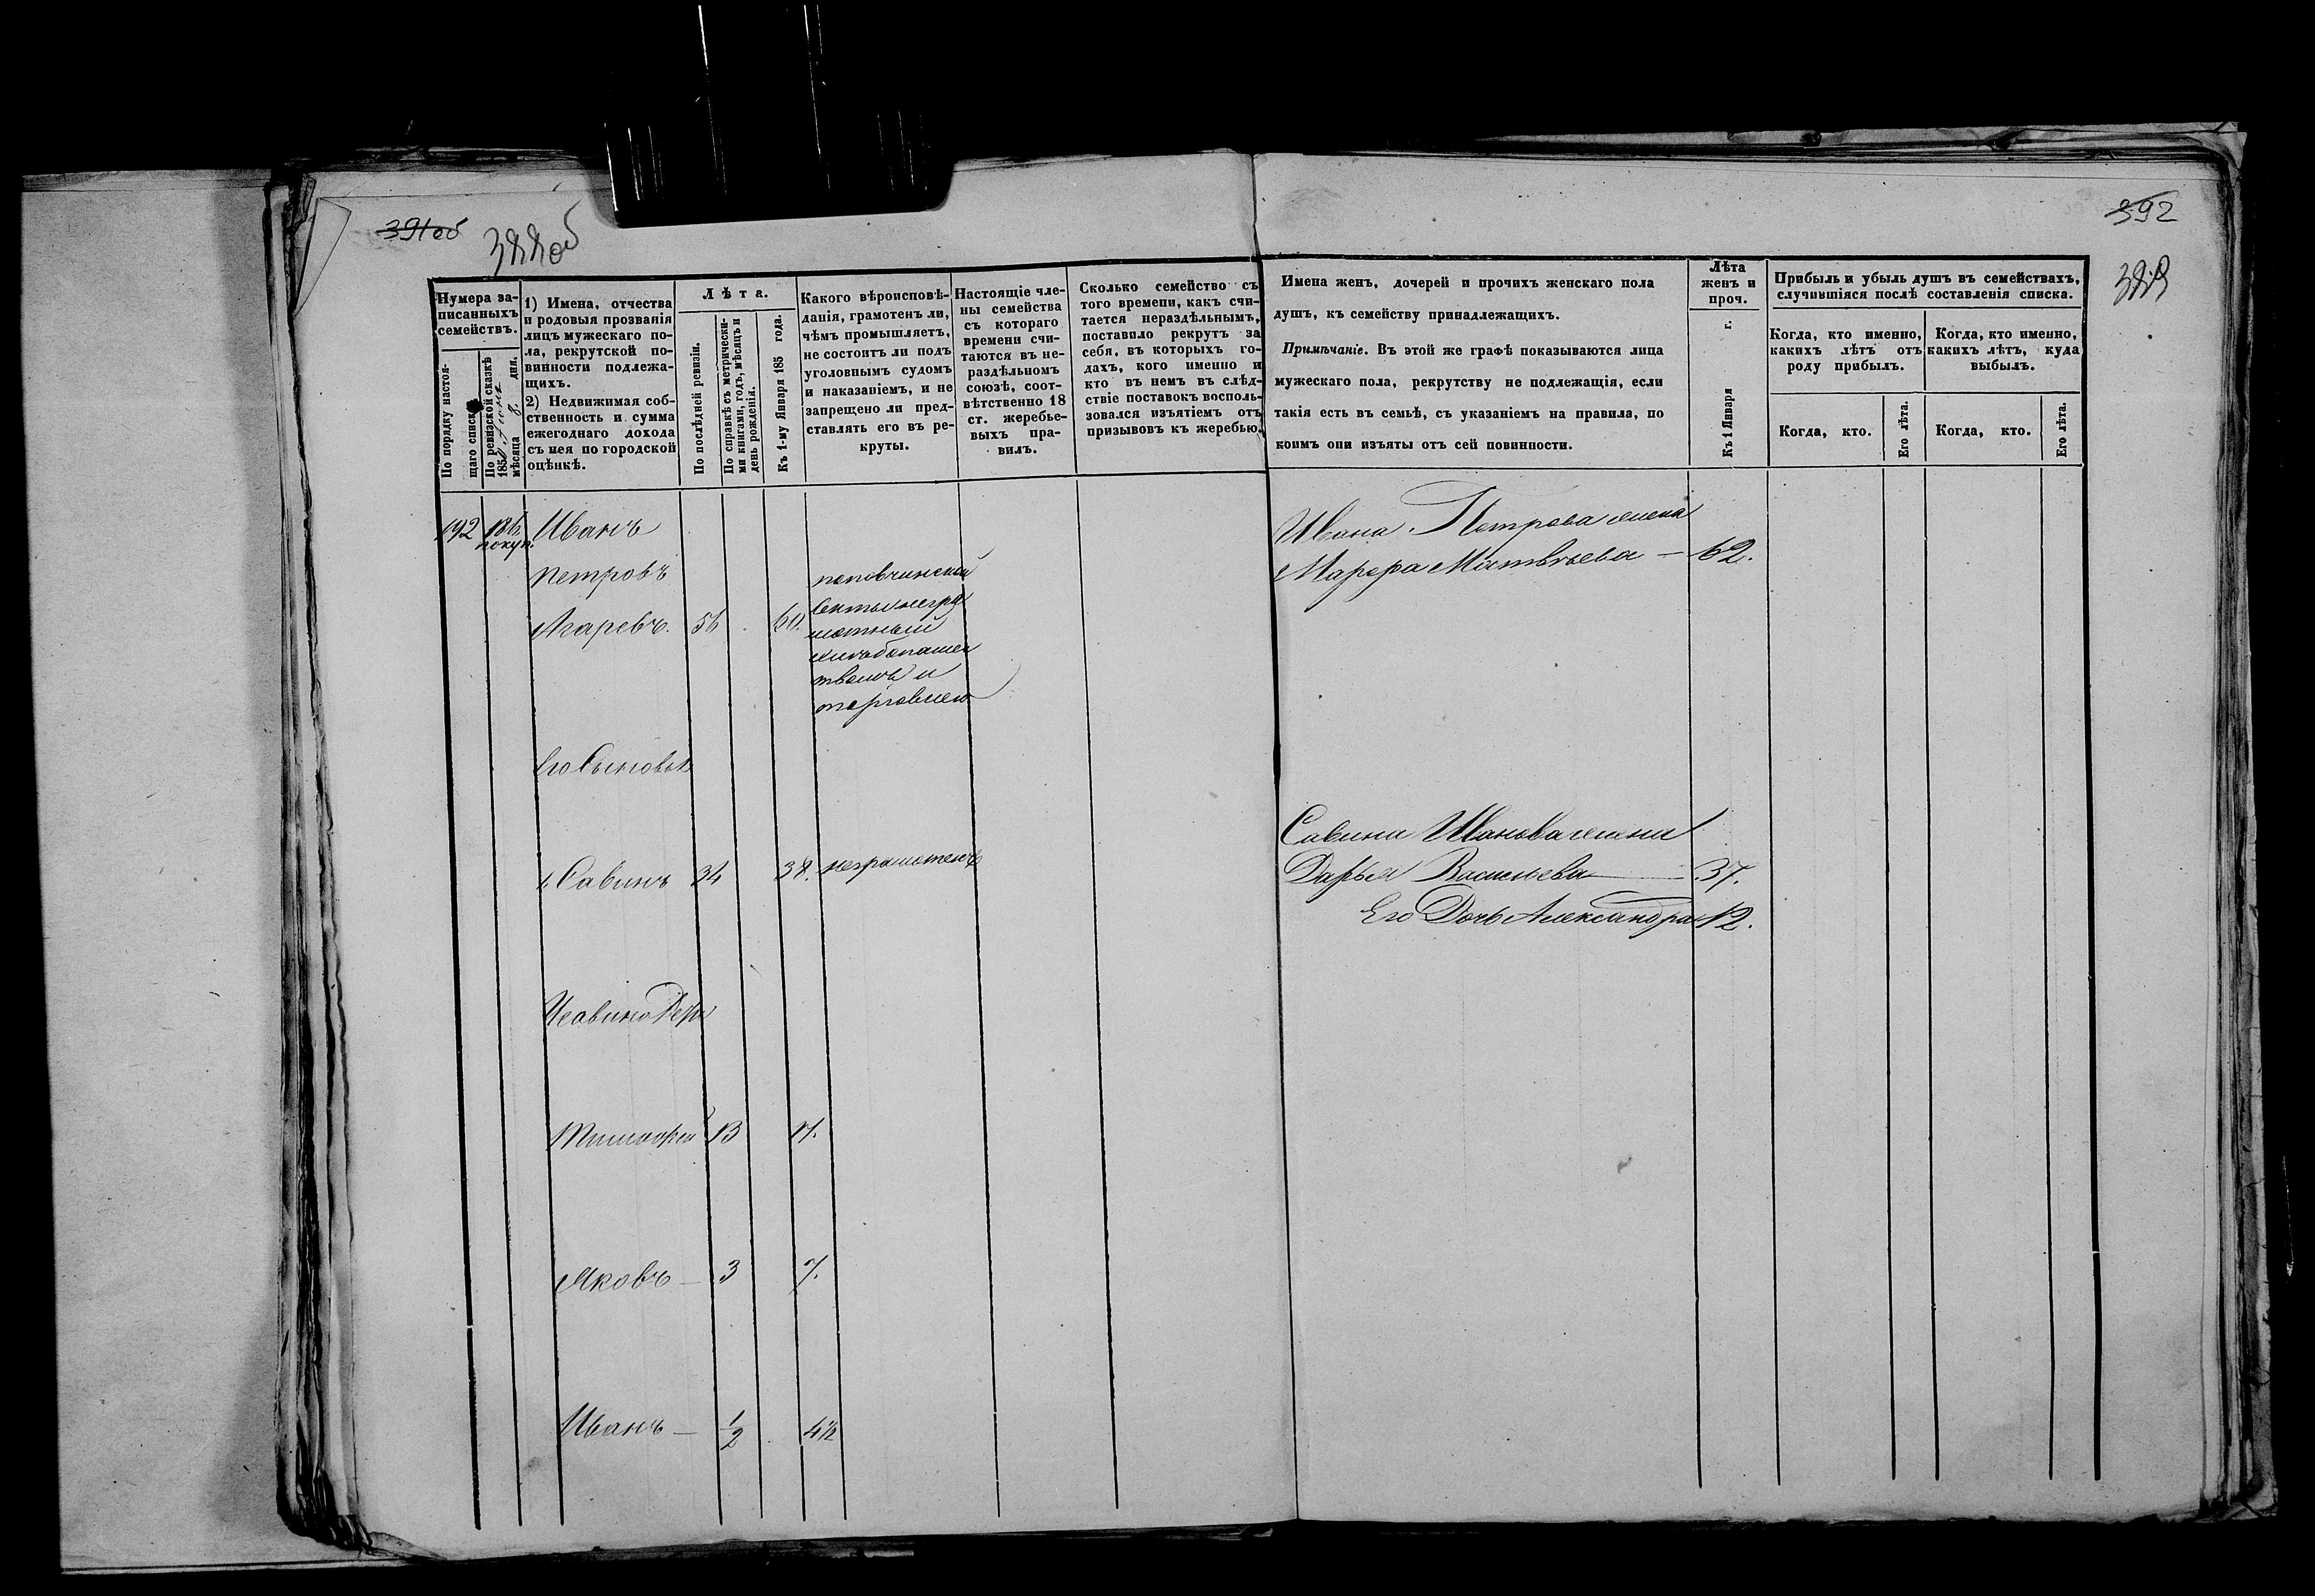 391об
388об
392
389
Нумера записанныхъ семействъ.
По порядку настоящаго списка
По ревизской сказкѣ 1850 Іюня мѣсяца 8 дня.
1) Имена, отчества
и родовыя прозванія
лицъ мужескаго по-
ла, рекрутской по-
винности подлежа-
щихъ.
2) Недвижимая соб-
ственность и сумма
ежегоднаго дохода
съ нея по городской
оцѣнкѣ.
Лѣта.
По послѣдней ревизіи.
По справкѣ съ метрически-
ми книгами, годъ, мѣсяцъ и
день рожденія.
Къ 1-му Января 185 года.
Какого вѣроисповѣ-
данія, грамотенъ ли,
чѣмъ промышляетъ,
не состоитъ ли подъ
уголовнымъ судомъ
и наказаніемъ, и не
запрещено ли пред-
ставлять его въ ре-
круты.
Настоящіе чле-
ны семейства
съ котораго
времени счи-
таются въ не-
раздѣльномъ
союзѣ, соот-
вѣтственно 18
ст. жеребье-
выхъ пра-
вилъ.
Сколько семейство съ
того времени, какъ счи-
тается нераздѣльнымъ,
поставило рекрутъ за
себя, въ которыхъ го-
дахъ, кого именно и
кто въ немъ въ слѣд-
ствіе поставокъ восполь-
зовался изъятіемъ отъ
призывовъ къ жеребью.
Имена женъ, дочерей и прочихъ женскаго пола
душъ, къ семейству принадлежащихъ.
Примѣчаніе. Въ этой же графѣ показываются лица
мужескаго пола, рекрутству не подлежащія, если
такія есть въ семьѣ, съ указаніемъ на правила, по
коимъ они изъяты отъ сей повинности.
Лѣта
женъ и
проч.
Къ 1 Января г.
Прибыль и убыль душъ въ семействахъ,
случившіяся послѣ составленія списка.
Когда, кто именно,
какихъ лѣтъ отъ
роду прибылъ.
Когда, кто именно,
какихъ лѣтъ, куда
выбылъ.
Когда, кто.
Его лѣта.
Когда, кто.
Его лѣта.
192 186 Иванъ
покуп.
Петровъ
Агаревъ. 56 60.
поповчинской
секты негра
мотный
хлѣбопашес
твомъ и
торговлею
Ивана Петрова жена
Марфа Матвѣева — 62.
Его Сыновья
1, Савинъ 34 38. неграмотенъ
Савина Иванова жена
Дарья Васильева 37.
Его Дочь Александра 12.
У Савина Дѣти
Тимофей 13 17.
Яковъ — 3 7.
Иванъ — 1/2 4 1/2